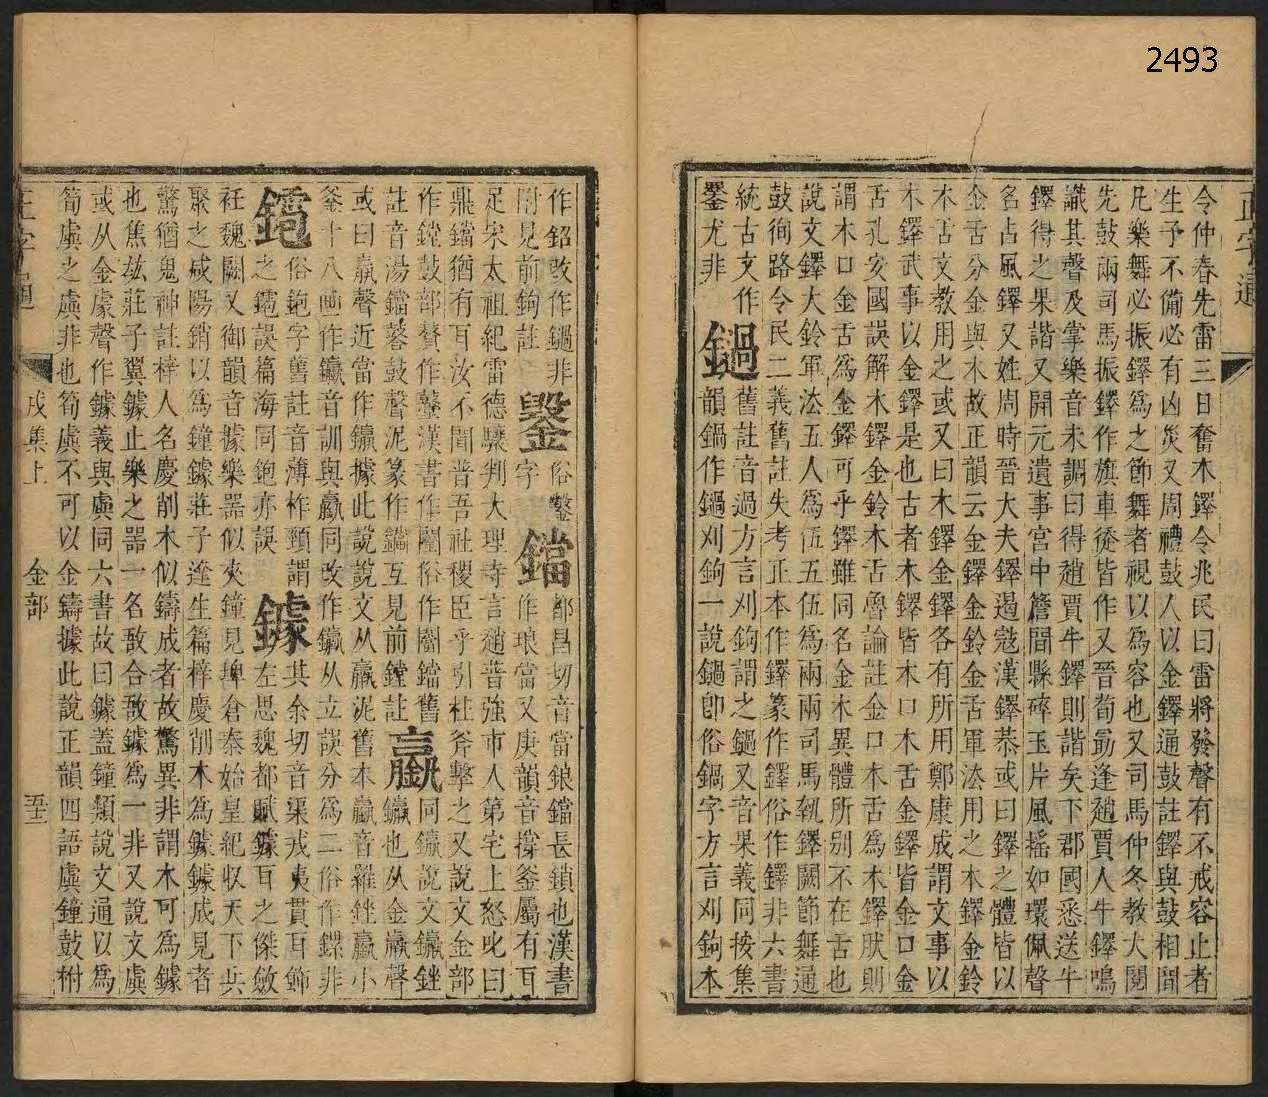 2493
正字通
令仲春先雷三日奮木鐸令兆民曰雷將發聲有不戒容止者
生子不備必有凶災又周禮鼓人以金鐸通鼓註鐸與鼓相間
凡樂舞必振鐸爲之節舞者視以爲容也又司馬仲冬教大閱
先鼓兩司馬振鐸作旗車徒皆作又晉荀勗逢趙賈人牛鐸鳴
識其聲及掌樂音未調曰得趙賈牛鐸則諧矣下郡國悉送牛
鐸得之果諧又開元遺事宮中簷間縣碎玉片風搖如環佩聲
名占風鐸又姓周時晉大夫鐸遏寇漢鐸恭或曰鐸之體皆以
金舌分金與木故正韻云金鐸金鈴金舌軍法用之木鐸金鈴
木舌文教用之或又曰木鐸金鐸各有所用鄭康成謂文事以
木鐸武事以金鐸是也古者木鐸皆木口木舌金鐸皆金口金
舌孔安國誤解木鐸金鈴木舌魯論註金口木舌爲木鐸肰則
謂木口金舌爲金鐸可乎鐸雖同名金木異體所別不在舌也
說文鐸大鈴軍法五人爲伍五伍爲兩兩司馬執鐸闕節舞通
鼓徇路令民二義舊註失考正本作鐸篆作鐸俗作鐸非六書
統古文作
舊註音過方言刈鉤謂之鐹又音果義同按集
鐹
韻鍋作鐹刈鉤一說鐹卽俗鍋字方言刈鉤本
作鉊攺作鐹非
附見前鉤註
鑿
俗鑿
字
鐺
都昌切音當鋃鐺長鎖也漢書
作琅當又庚韻音撐釜屬有耳
足宋太祖紀雷德驤判大理寺言趙普強市人第宅上怒叱曰
鼎鐺猶有耳汝不聞普吾社稷臣乎引柱斧擊之又說文金部
作鏜鼓部贅作鼞漢書作闛俗作闛鐺舊
註音湯鐺鼛鼓聲泥篆作鐺互見前鏜註
同鑼說文鑼銼
鑼也从金羸聲
或曰羸聲近當作鑼據此說說文从羸泥舊本羸音羅銼羸小
釜十八畫作鑼音訓與羸同攺作鑼从立誤分爲二俗作鏍非
俗鉋字舊註音薄柞頸謂
之鑤誤篇海同鉋亦誤
鐻
其余切音渠戎夷貫耳飾
左思魏都賦鐻耳之傑斂
衽魏闕又御韻音據樂器似夾鐘見埤倉秦始皇紀收天下兵
聚之咸陽銷以爲鐘鐻莊子達生篇梓慶削木爲鐻鐻成見者
驚猶鬼神註梓人名慶削木似鑄成者故驚異非謂木可爲鐻
也焦竑莊子翼鐻止樂之器一名敔合敔鐻爲一非又說文虡
或从金豦聲作鐻義與虡同六書故曰鐻蓋鐘類說文通以爲
筍虡之虡非也筍虡不可以金鑄據此說正韻四語虡鐘鼓柎
正字通
戌集上
金部
五三